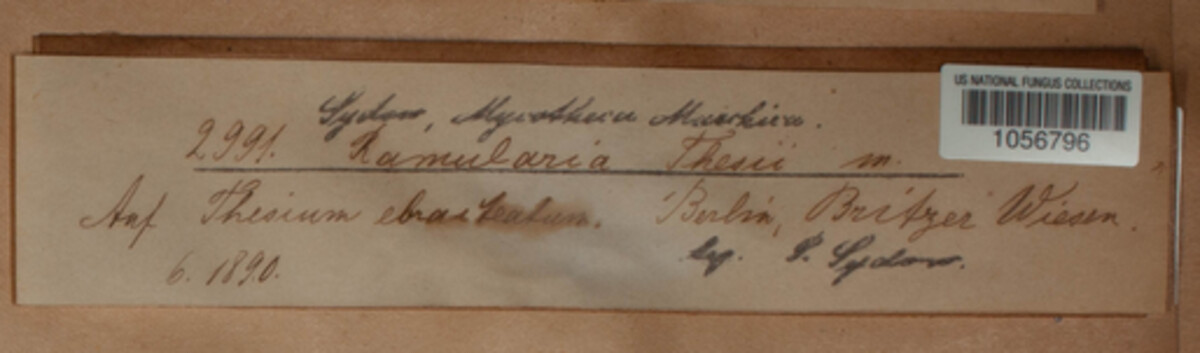 Sydow, Mycotheca Marchica.
2991. Ramularia Thesii m.
Auf Thesium ebracteatum. Berlin, Britzer Wiesen.
6. 1890.
leg. P. Sydow.
US NATIONAL FUNGUS COLLECTIONS
1056796